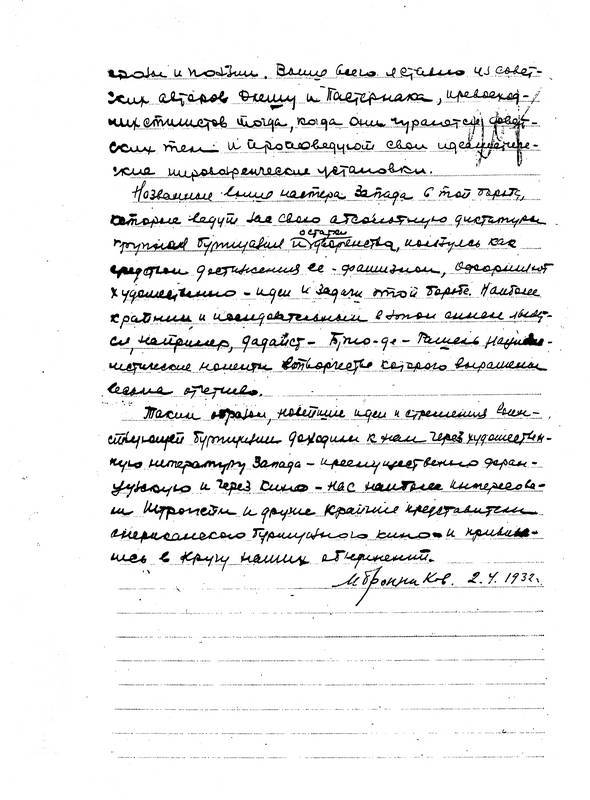 прозы и поэзии. Выше всего я ставлю из совет-
ских авторов Олешу и Пастернака, превосход-
ных стилистов тогда, когда они чураются совет-
ских тем и проповедуют свои идеалистиче-
ские мировоззренческие установки.
Названные выше мастера Запада в той борьбе,
которые ведут за свою абсолютную диктатуру
крупная буржуазия и остатки дворянства, пользуясь как
средством достижения ее - фашизмом, оформляют
художественно - идеи и задачи этой борьбы. Наиболее
крайним и последовательным в этом смысле являет-
ся, например, дадаист - 
моменты в творчестве которого выражены
весьма отчетливо.
Таким образом, новейшие идеи и стремления воин-
ствующей буржуазии доходили к нам через художествен-
ную литературу Запада - преимущественно фран-
цузскую и через кино - нас наиболее интересова-
ли и другие крайние представители
американского буржуазного кино - и привива-
лись в кругу наших
МБронников. 2.V.1932г.